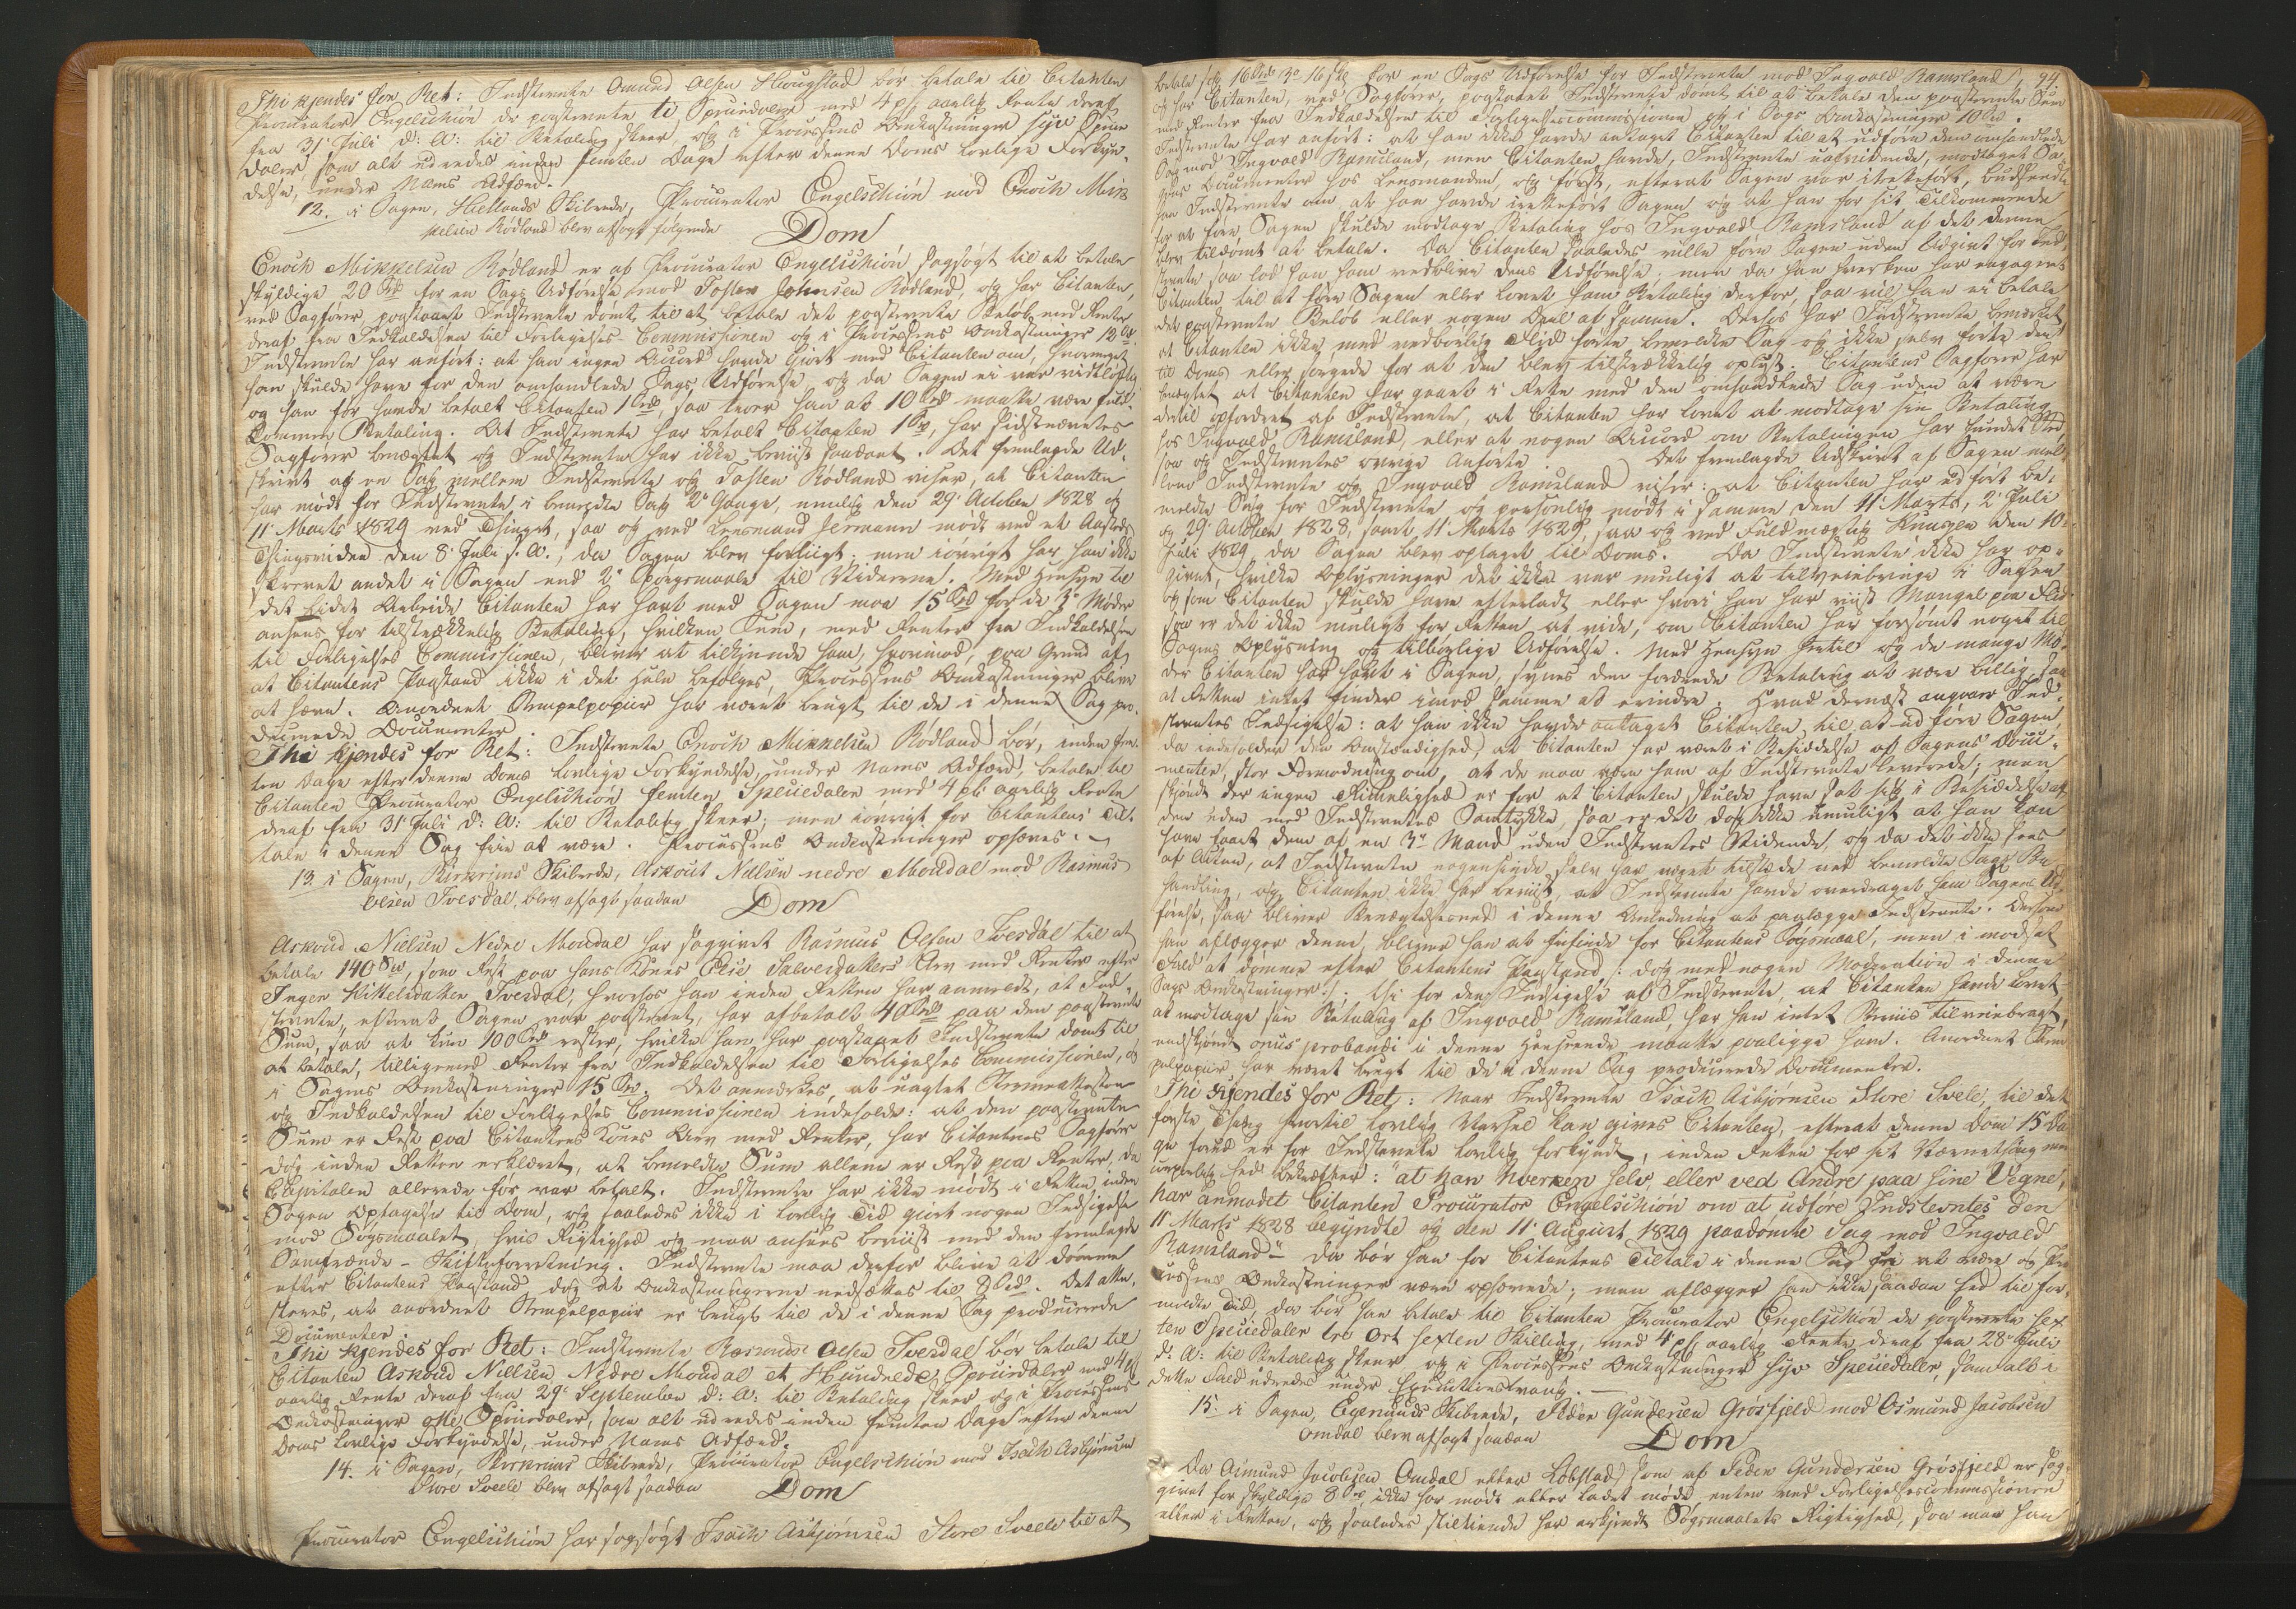 Thi kjendes for Ret: Indstevnte Omund Olsen Hougstad bør betale til Citanten
Procurator Engelschiøn de paastevnte ti Speciedaler med 4 pC aarlig Rente deraf
fra 31 Juli d: A: til Betaling skeer og i Processens Omkostninger syv Specie
Daler, som alt udredes inden femten Dage efter denne Doms lovlige Forkyn-
delse, under Nams Adfærd.
12. i Sagen, Hetlands Skibrede, Procurator Engelschiøn mod Enoch Mik
kelsen Rødland blev afsagt følgende
Dom
Enoch Mikkelsen Rødland er af Procurator Engelschiøn sagsøgt til at betale
skyldige 20 Spd for en Sags Udførelse imod Tosten Johnsen Rødland, og har Citanten,
ved Sagfører, paastaaet Indstevnte dømt til at betale det paastevnte Beløb med Renter
deraf fra Indkaldelsen til Forligelses-Commissionen og i Processens Omkostninger 12 Spd.
Indstevnte har anført: at han ingen Accord havde gjort med Citanten om, hvormeget
han skulde have for den omhandlede Sags Udførelse, og da Sagen ei var vidtløftig
og han før havde betalt Citanten 1 Spd, saa troer han at 10 Spd maatte være fuld-
kommen Betaling. At Indstevnte har betalt Citanten 1 Spd, har Sidstnævntes
Sagfører benægtet og Indstevnte har ikke beviist saadant. Det fremlagde Ud-
skrivt af en Sag mellem Indstevnte og Tosten Rødland viser, at Citanten
har mødt for Indstevnte i benævnte Sag 2de Gange, nemlig den 29 October 1828 og
11 Marts 1829 ved Thinget, saa og ved Lensmand Jermann mødt ved et Aasteds
Thingsvidne den 8 Juli s. A., da Sagen blev forliigt; men iøvrigt har han ikke
skrevet andet i Sagen end 2de Spørgsmaale til Vidnerne. Med Hensyn til
det lidet Arbeide Citanten har havt med Sagen maa 15 Spd for de 3de Møder
ansees for tilstrækkelig Betaling, hvilken Sum, med Renter fra Indkaldelsen
til Forligelses Commissionen, bliver at tilkjende ham, hvorimod, paa Grund af,
at Citantens Paastand ikke i det Hele befølges, Processens Omkostninger blive
at hæve. Anordnet Stempelpapiir har været brugt til de i denne Sag pro-
ducerede Documenter.
Thi kjendes for Ret: Indstevnte Enoch Mikkelsen Rødland bør, inden fem-
ten Dage efter denne Doms lovlige Forkyndelse, under Nams Adfærd, betale til
Citanten Procurator Engelschiøn femten Speciedaler med 4 pC aarlig Rente
deraf fra 31 Juli d: A: til Betaling skeer; men iøvrigt for Citantens Til-
tale i denne Sag frie at være. Processens Omkostninger ophæves.
13. i Sagen, Birkrims Skibrede, Askout Nielsen nedre Moudal mod Rasmus
Olsen Tvesdal, blev afsagt saadan
Dom
Askoud Nielsen Nedre Moudal har saggivet Rasmus Olsen Tvesdal til at
betale 140 Spd, som Rest paa hans Kones Else Salvesdatters Arv med Renter efter
Inger Kittelsdatter Tvesdal, hvorhos han inden Retten har anmeldt, at Ind-
stevnte, efterat Sagen var paastevnt, har afbetalt 40 Spd paa den paastevnte
Sum, saa at kun 100 Spd rester, hvilke han har paastaaet Indstevnte dømt til
at betale, tilligemed Renter fra Indkaldelsen til Forligelses Commissionen, og
i Sagens Omkostninger 15 Spd. Det anmærkes, at uagtet Stevneattesten
og Indkaldelsen til Forligelses Commissionen indeholde: at den paastevnte
Sum er Rest paa Citantens Kones Arv med Renter, har Citantens Sagfører
dog inden Retten erklæret, at bemeldte Sum allene er Rest paa Renter, da
Capitalen allerede før var betalt. Indstevnte har ikke mødt i Retten inden
Sagens Optagelse til Dom, og saaledes ikke i lovlig Tid gjort nogen Indsigelse
mod Søgsmaalet, hvis Rigtighed og maa ansees beviist med den fremlagde
Samfrænde-Skifteforretning. Indstevnte maa derfor blive at dømme
efter Citantens Paastand dog at Omkostningerne nedsættes til 8 Spd. Det atte-
steres, at anordnet Stempelpapiir er brugt til de i denne Sag producerede
Documenter.
Thi kjendes for Ret: Indstevnte Rasmus Olsen Tvesdal bør betale til
Citanten Askoud Nielsen Nedre Moudal et Hundrede Speciedaler med 4 pC
aarlig Rente deraf fra 29 September d: A: til Betaling skeer og i Processens
Omkostninger otte Speciedaler, som alt udredes inden femten Dage efter denne
Doms lovlige Forkyndelse, under Nams Adfærd.
14. i Sagen, Birkrims Skibrede, Procurator Engelschiøn mod Isach Asbjørnsen
Store Svele blev afsagt saadan
Dom
Procurator Engelschiøn har sagsøgt Isach Asbjørnsen Store Svele til at
94
betale sig 16 Spd 3 Ort 16 Sk for en Sags Udførelse for Indstevnte mod Ingvald Ramsland,
og har Citanten, ved Sagfører, paastaaet Indstevnte dømt til at betale den paastevnte Sum
med Renter fra Indkaldelsen til Forligelsescommissionen og i Sags Omkostninger 10 Spd.
Indstevnte har anført: at han ikke havde antaget Citanten til at udføre den omhandlede
Sag mod Ingvald Ramsland, men Citanten havde, Indstevnte uafvidende, modtaget Sa-
gens Documenter hos Lensmanden, og først, efterat Sagen var iretteført, budsendte
han Indstevnte om, at han havde iretteført Sagen og at han for sit Tilkommende
for at føre Sagen skulde modtage Betaling hos Ingvald Ramsland af det denne
blev tildømt at betale. Da Citanten saaledes vilde føre Sagen uden Udgivt for Ind-
stevnte saa lod han ham vedblive dens Udførelse; men da han hverken har engageret
Citanten til at føre Sagen eller lovet ham Betaling derfor, saa vil han ei betale
det paastevnte Beløb eller nogen Deel af samme. Derhos har Indstevnte bemærket,
at Citanten ikke, med vedbørlig Flid førte bemeldte Sag og ikke selv førte den
til Doms eller sørgede for at den blev tilstrækkelig oplyst. Citantens Sagfører har
benægtet at Citanten har gaaet i Rette med den omhandlede Sag uden at være
dertil opfordret af Indstevnte, at Citanten har lovet at modtage sin Betaling
hos Ingvald Ramsland, eller at nogen Accord om Betalingen har fundet Sted,
saa og Indstevntes øvrige Anførte. Det fremlagde Udskrivt af Sagen mel-
lem Indstevnte og Ingvald Ramsland viser: at Citanten har udført be-
meldte Sag for Indstevnte og personlig mødt i samme den 11 Marts, 2 Juli
og 29 October 1828, samt 11 Marts 1829, saa og ved Fuldmægtig Knutzen den 10
Juli 1829, da Sagen blev optaget til Doms. Da Indstevnte ikke har op-
givet, hvilke Oplysninger det ikke var muligt at tilveiebringe i Sagen
og som Citanten skulde have efterladt eller hvori han har viist Mangel paa Flid
saa er det ikke muligt for Retten at vide, om Citanten har forsømt noget til
Sagens Oplysning og tilbørlige Udførelse. Med Hensyn hertil og de mange Mø-
der Citanten har havt i Sagen, synes den fordrede Betaling at være billig, saa
at Retten intet finder imod samme at erindre. Hvad dernæst angaaer Ind-
stevntes Indsigelse: at han ikke havde antaget Citanten til at udføre Sagen,
da indeholder den Omstændighed, at Citanten har været i Besiddelse af Sagens Docu-
menter, stor Formodning om, at de maa være ham af Indstevnte leverede; men
skjøndt der ingen Rimelighed er for at Citanten skulde have sat sig i Besiddelse af
dem uden med Indstevntes Samtykke, saa er det dog ikke umuligt at han kan
have faaet dem af en 3die Mand uden Indstevntes Vidende, og da det ikke sees
af Acten, at Indstevnte nogensinde selv har været tilstede ved bemeldte Sags Be-
handling, og Citanten ikke har beviist, at Indstevnte havde overdraget ham Sagens Ud-
førelse, saa bliver Benægtelseseed i denne Anledning at paalægge Indstevnte. Dersom
han aflægger denne, bliver han at frifinde for Citantens Søgsmaal, men i modsat
Fald at dømme efter Citantens Paastand /: dog med nogen Moderation i denne
Sags Omkostninger :/; thi for den Indsigelse af Indstevnte, at Citanten havde lovet
at modtage sin Betaling af Ingvald Ramsland, har han intet Beviis tilveiebragt,
endskjøndt onus probandi i denne Henseende maatte paaligge ham. Anordnet Stem
pelpapiir har været brugt til de i denne Sag producerede Documenter.
Thi kjendes for Ret: Naar Indstevnte Isach Asbjørnsen Store Svele, til det
første Thing hvortil lovlig Varsel kan gives Citanten, efterat denne Dom 15 Da
ge forud er for Indstevnte lovlig forkyndt, inden Retten for sit Værnething med
corporlig Eed bekræfter: "at han hverken selv, eller ved Andre paa sine Vegne,
har anmodet Citanten Procurator Engelschiøn om at udføre Indstevntes den
11 Marts 1828 begyndte og den 11 August 1829 paadømte Sag mod Ingvald
Ramsland" da bør han for Citantens Tiltale i denne Sag fri at være og Pro
cessens Omkostninger være ophævede; men aflægger han ikke saadan Eed til for-
meldte Tid, da bør han betale til Citanten Procurator Engelschiøn de paastevnte sex
ten Speciedaler tre Ort sexten Skilling, med 4 pC aarlig Rente deraf fra 28 Juli
d: A: til Betaling skeer og i Processens Omkostninger syv Speciedaler, som alt i
dette Fald udredes under Executionstvang.
15. i Sagen, Egersunds Skibrede, Peder Gundersen Grøsfjeld mod Osmund Jacobsen
Omdal blev afsagt saadan
Dom
Da Osmund Jacobsen Omdal eller Løbstad, som af Peder Gundersen Grøsfjeld er sag-
givet for skyldige 8 Spd, ikke har mødt eller ladet møde enten ved Forligelsescommissionen
eller i Retten, og saaledes stiltiende har erkjendt Søgsmaalets Rigtighed, saa maa han